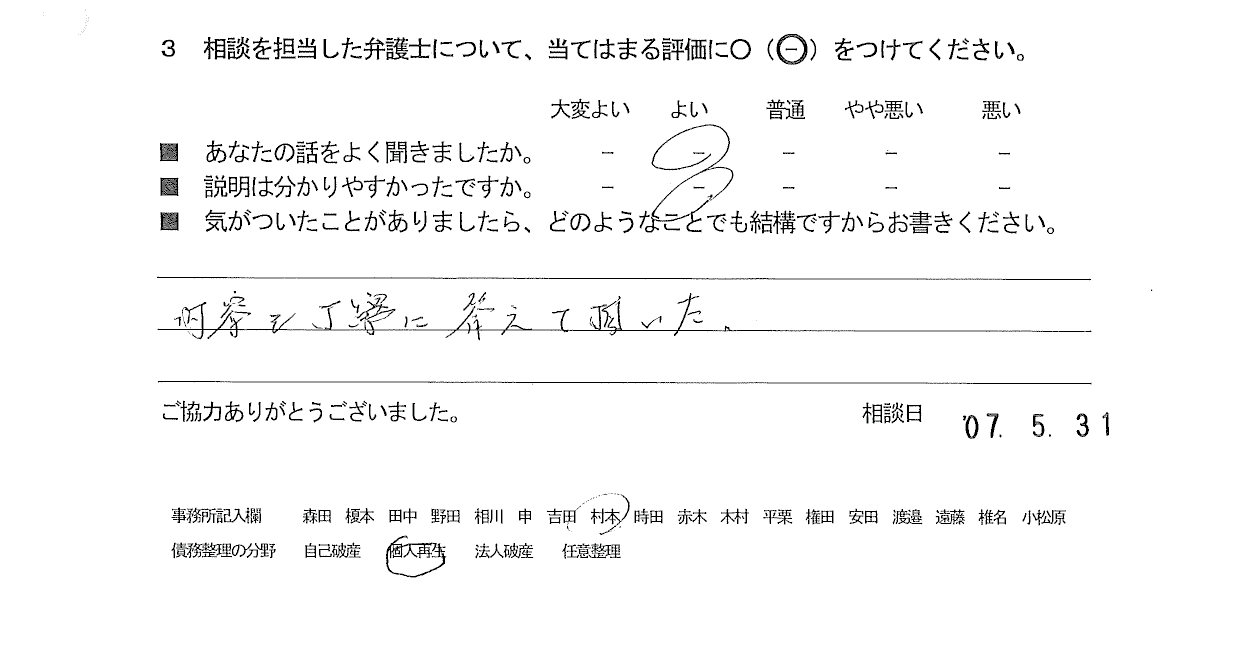 3 相談を担当した弁護士について、当てはまる評価に○（㊀）をつけてください。
大変よい よい 普通 やや悪い 悪い
■ あなたの話をよく聞きましたか。 － － － － －
■ 説明は分かりやすかったですか。 － － － － －
■ 気がついたことがありましたら、どのようなことでも結構ですからお書きください。
丁寧に答えて頂いた。
ご協力ありがとうございました。 相談日 '07. 5. 31
事務所記入欄 森田 榎本 田中 野田 相川 申 吉田 村本 時田 赤木 木村 平栗 権田 安田 渡邉 遠藤 椎名 小松原
債務整理の分野 自己破産 個人再生 法人破産 任意整理